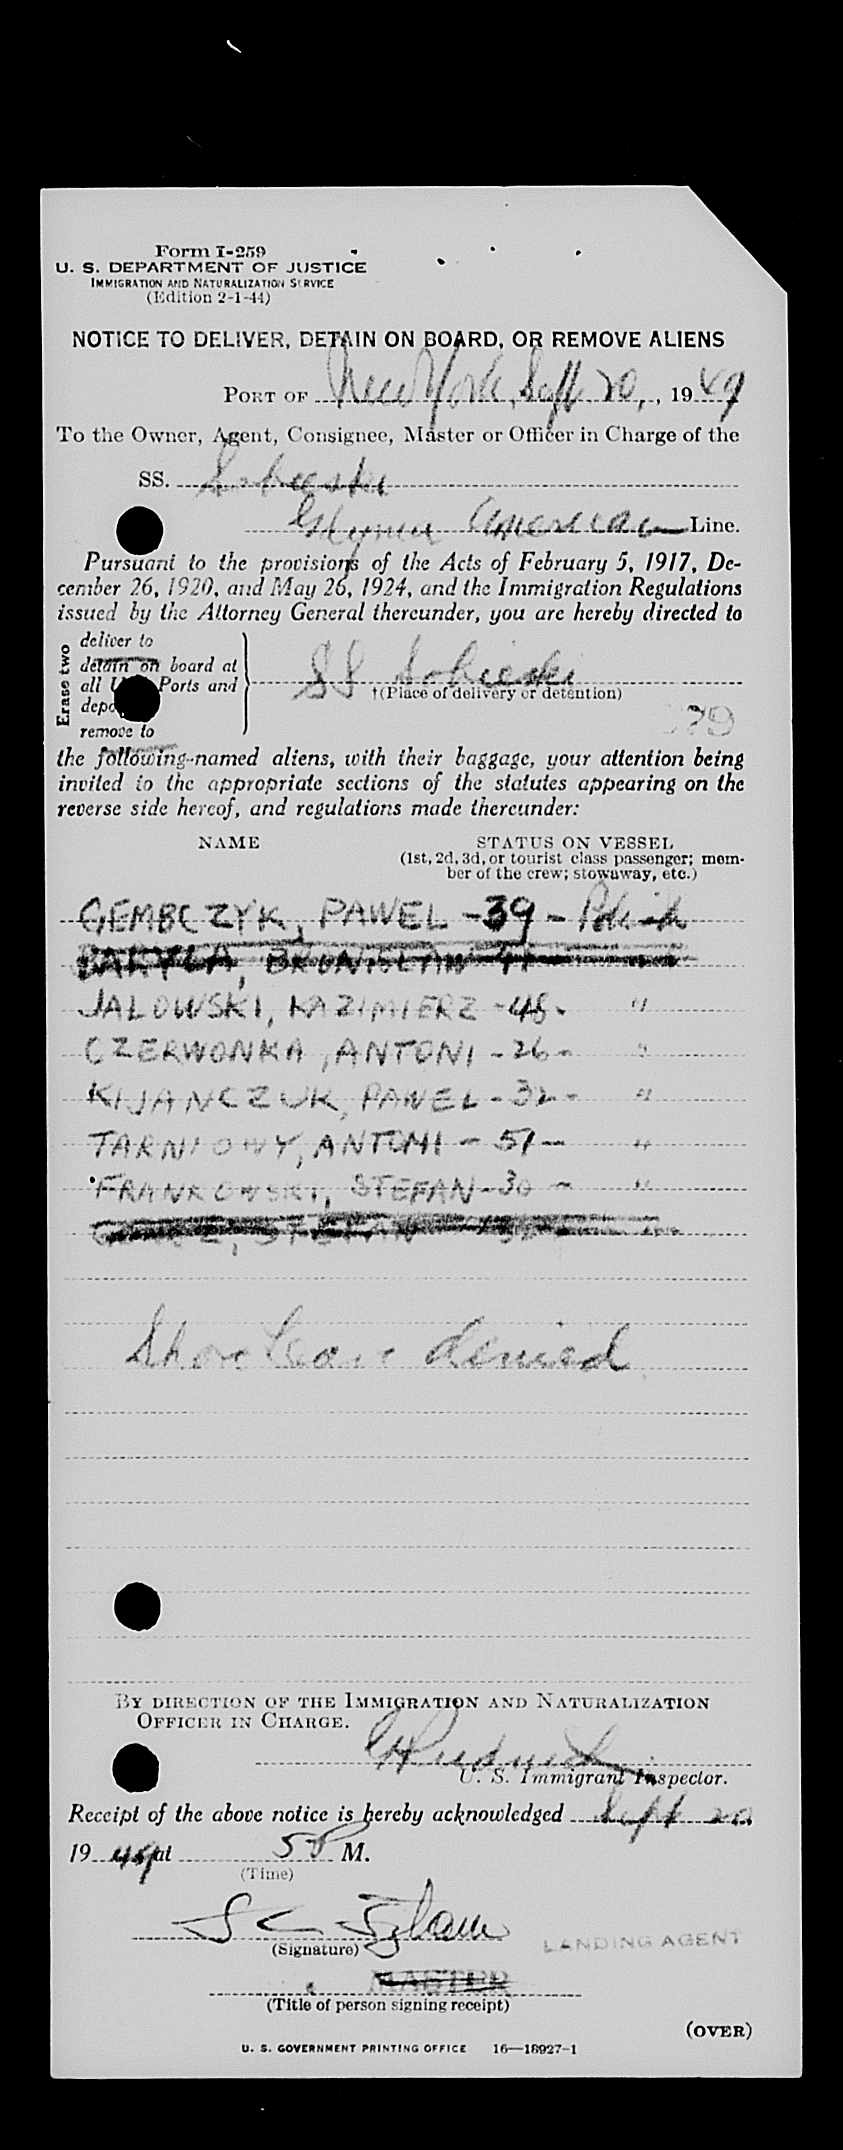 Form I-259
U. S. DEPARTMENT OF JUSTICE
IMMIGRATION AND NATURALIZATION SERVICE
(Edition 2-1-44)
NOTICE TO DELIVER, DETAIN ON BOARD, OR REMOVE ALIENS
PORT OF New York, Sept. 20, , 19 49
To the Owner, Agent, Consignee, Master or Officer in Charge of the
SS. Sobieski
American Line.
Pursuant to the provisions of the Acts of February 5, 1917, De-
cember 26, 1920, and May 26, 1924, and the Immigration Regulations
issued by the Attorney General thereunder, you are hereby directed to
Erase two
deliver to
detain on board at
all Ports and
remove to
SS Sobieski
†(Place of delivery or detention)
the following-named aliens, with their baggage, your attention being
invited to the appropriate sections of the statutes appearing on the
reverse side hereof, and regulations made thereunder:
NAME STATUS ON VESSEL
(1st, 2d, 3d, or tourist class passenger; mem-
ber of the crew; stowaway, etc.)
GEMBCZYK, PAWEL - 39 - Polish
BRONISLAW
JALOWSKI, KAZIMIERZ - 48 - "
CZERWONKA, ANTONI - 26 - "
KIJANCZUK, PAWEL - 32 - "
TARNIOWY, ANTONI - 51 - "
FRANKOWSKI, STEFAN - 30 - "
STEFAN
Shore Leave denied
BY DIRECTION OF THE IMMIGRATION AND NATURALIZATION
OFFICER IN CHARGE.
U. S. Immigrant Inspector.
Receipt of the above notice is hereby acknowledged Sept 20
19 49 at 5 P M.
(Time)
(Signature)
LANDING AGENT
MASTER
(Title of person signing receipt)
(OVER)
U. S. GOVERNMENT PRINTING OFFICE 16—18927-1